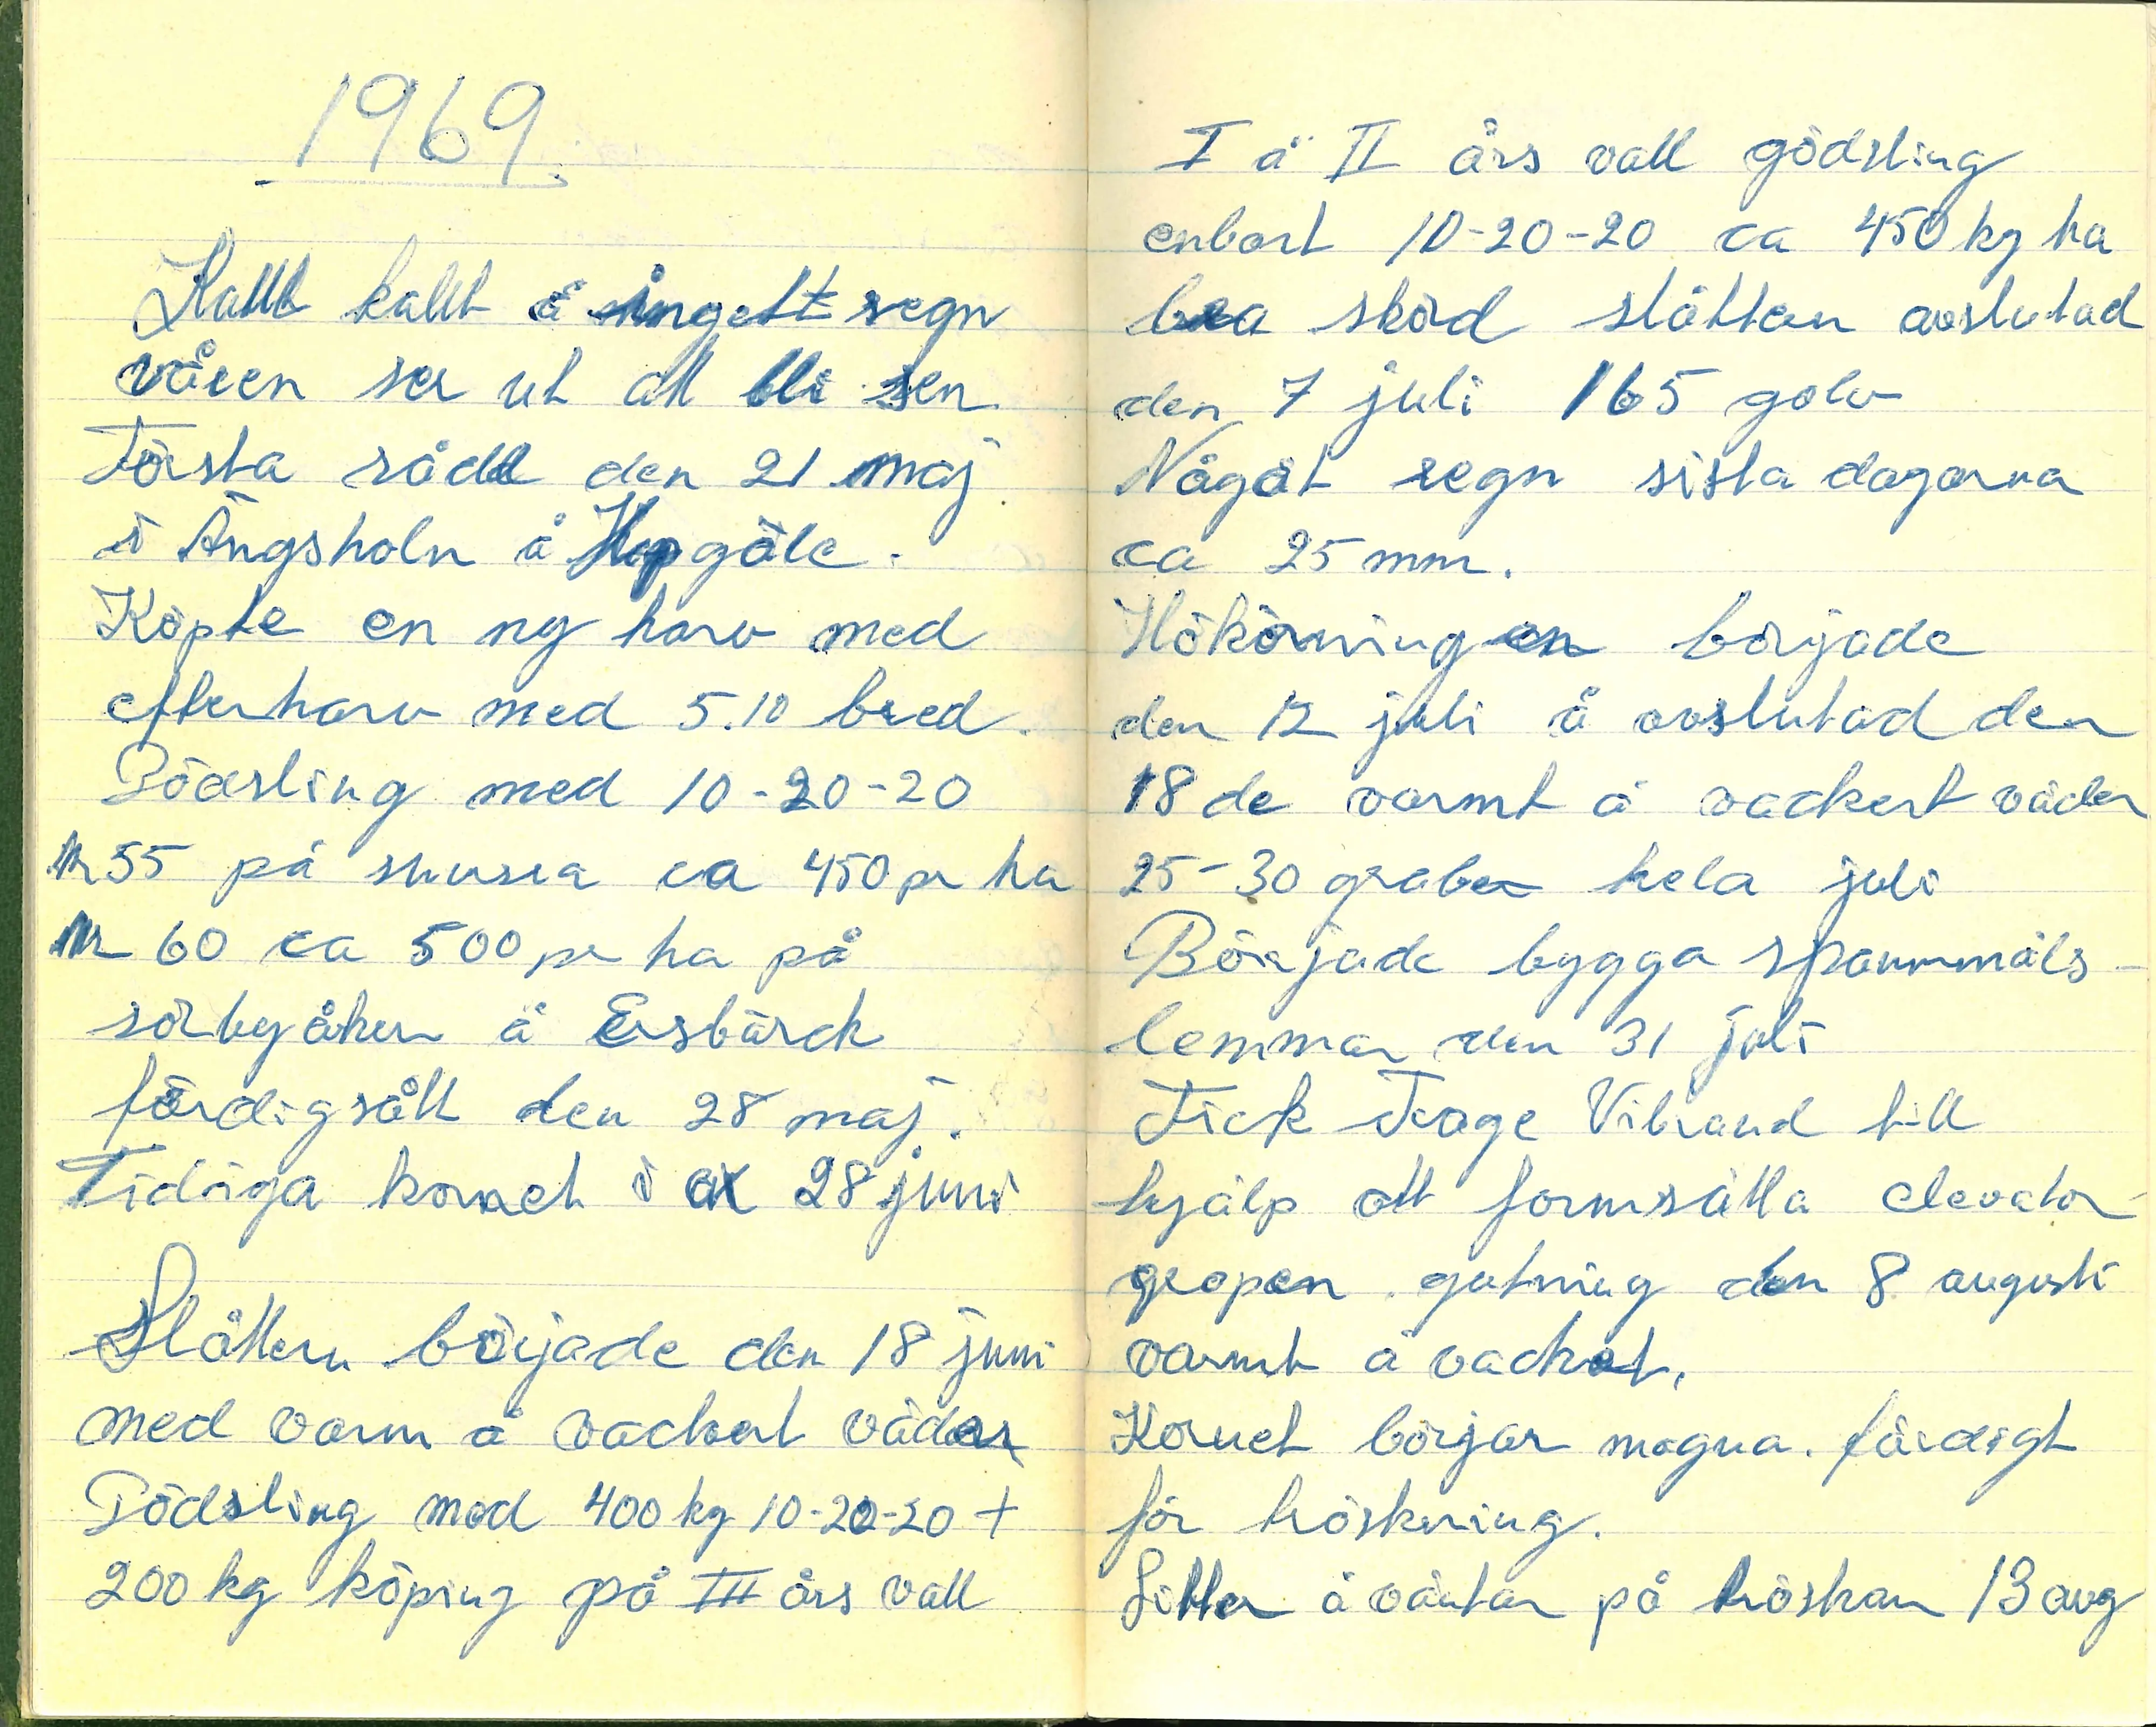 1969.
Kallt kallt å ingett regn
våren ser ut att bli sen
Första sådd den 21 maj
i Ängsholn å
Köpte en ny harv med
efterharv med 5.10 bred.
Gödsling med 10-20-20
nr 55 på ca 450 pr ha
nr 60 ca 500 pr ha på
sörbyåkern å Ersbärck
färdigsått den 28 maj.
Tidiga kornet i ax 28 juni
Slåttern började den 18 juni
med varm å vackert väder
Gödsling med 400 kg 10-20-20 +
200 kg köping på III års vall
I å II års vall gödsling
enbart 10-20-20 ca 450 kg ha
bra skörd slåttan avslutad
den 7 juli 165 golv
Något regn sista dagarna
ca 25 mm.
Hökörningen började
den 12 juli å avslutad den
18 de varmt å vackert väder
25-30 grader hela juli
Började bygga spannmåls-
lemmar den 31 juli
Fick Frage Vibrand till
hjälp att formsätta elevator-
gropen. gutning den 8 augusti
varmt å vackert.
Kornet börjar mogna. färdigt
för tröskning.
Sitter å väntar på tröskan 13 aug